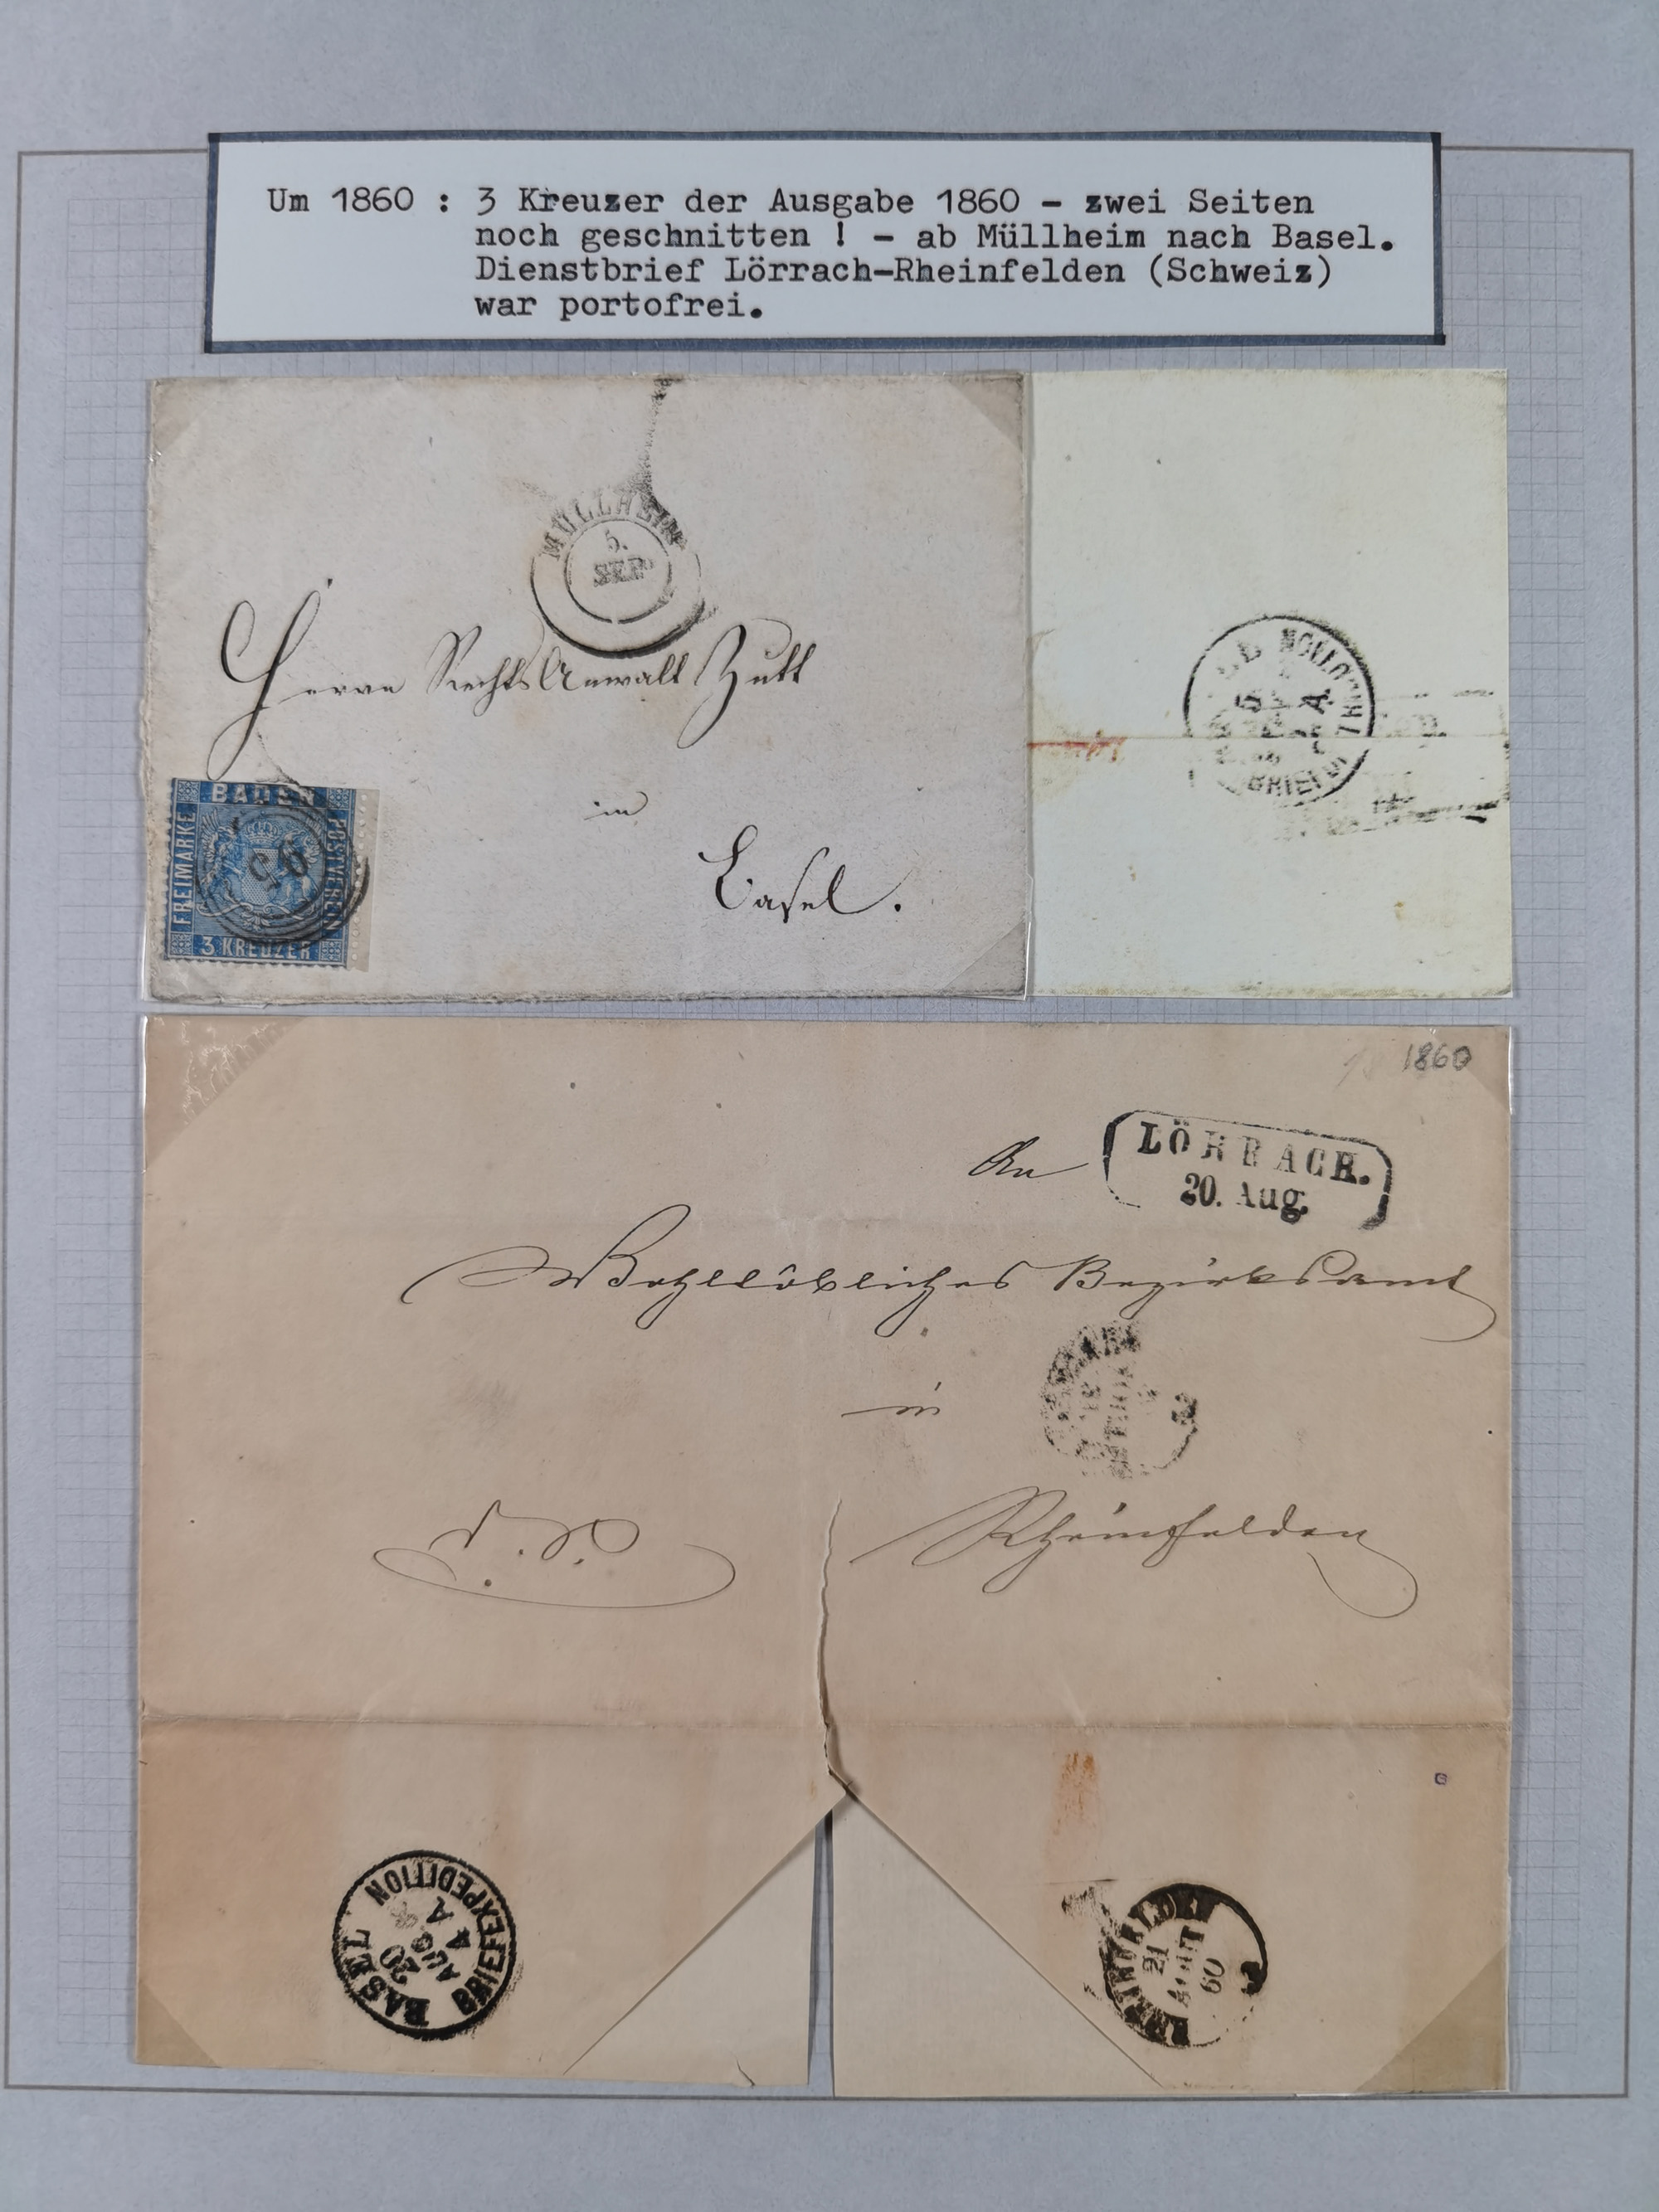 Um 1860 : 3 Kreuzer der Ausgabe 1860 - zwei Seiten
noch geschnitten ! - ab Müllheim nach Basel.
Dienstbrief Lörrach-Rheinfelden (Schweiz)
war portofrei.
MÜLLHEIM
5.
SEP.
Herrn RechtsAnwalt Zutt
in
Basel.
BADEN
FREIMARKE
POSTVEREIN
3 KREUZER
5
A
1860
An
LÖRRACH.
20. Aug.
Wohllöbliches Bezirksamt
in
Rheinfelden
BASEL
20
AUG
4 A
BRIEFEXPEDITION
RHEINFELDEN
21
AOUT
60